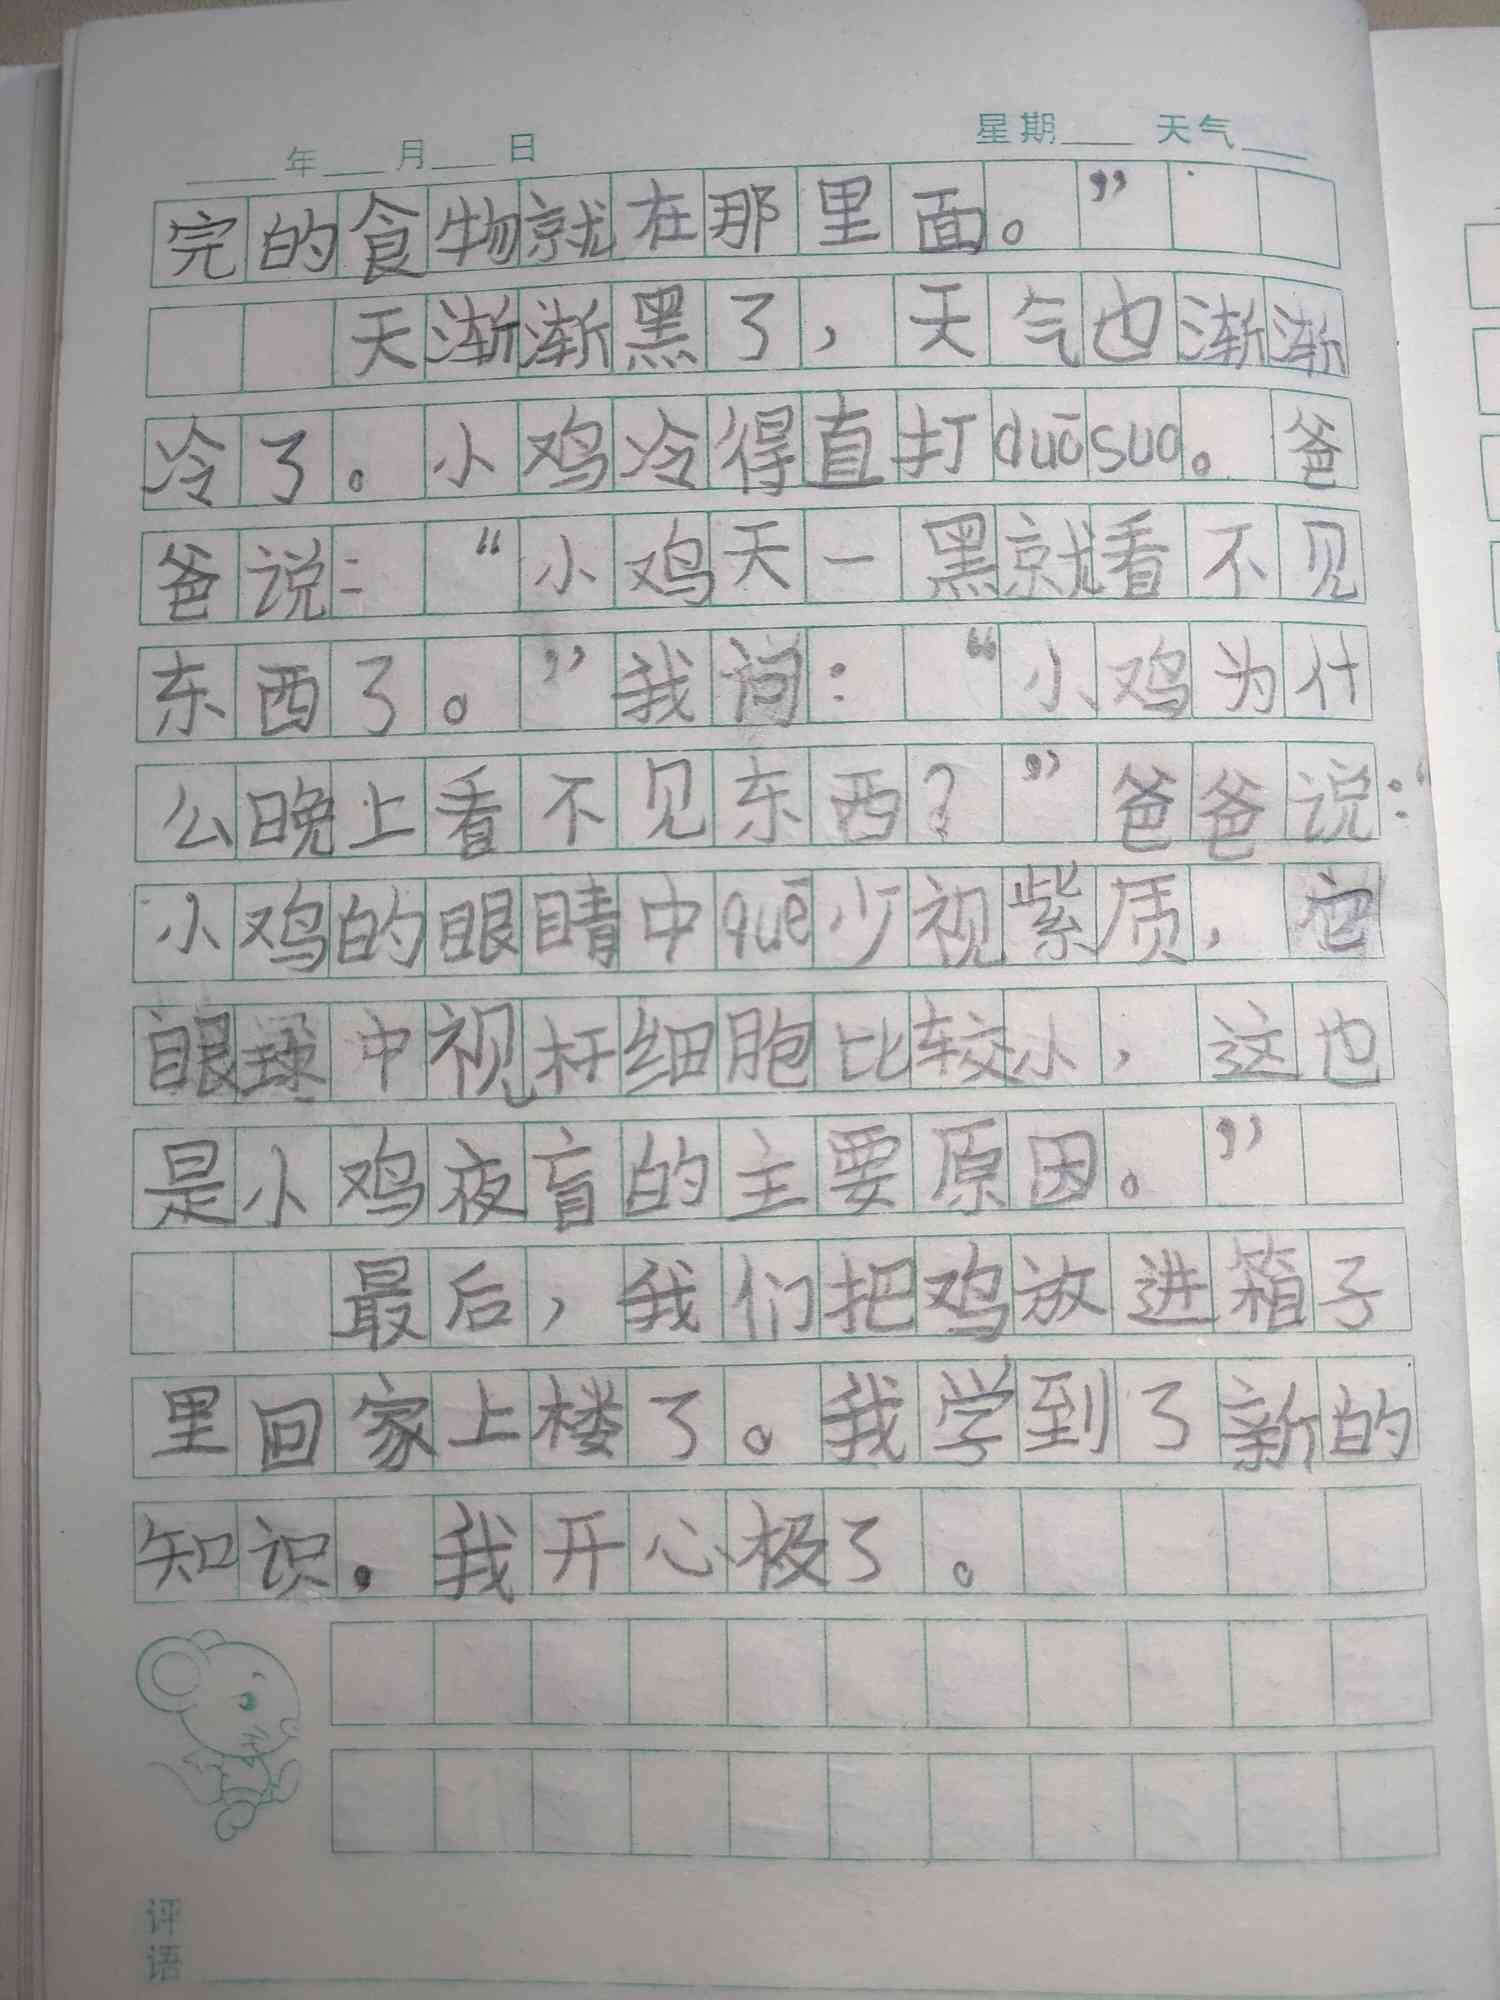 年 月 日 星期 天气
完的食物就在那里面。”
天渐渐黑了，天气也渐渐
冷了。小鸡冷得直打duōsuo。爸
爸说：“小鸡天一黑就看不见
东西了。”我问：“小鸡为什
么晚上看不见东西？”爸爸说：“
小鸡的眼睛中quē少视紫质，它
眼球中视杆细胞比较小，这也
是小鸡夜盲的主要原因。”
最后，我们把鸡放进箱子
里回家上楼了。我学到了新的
知识。我开心极了。
评语